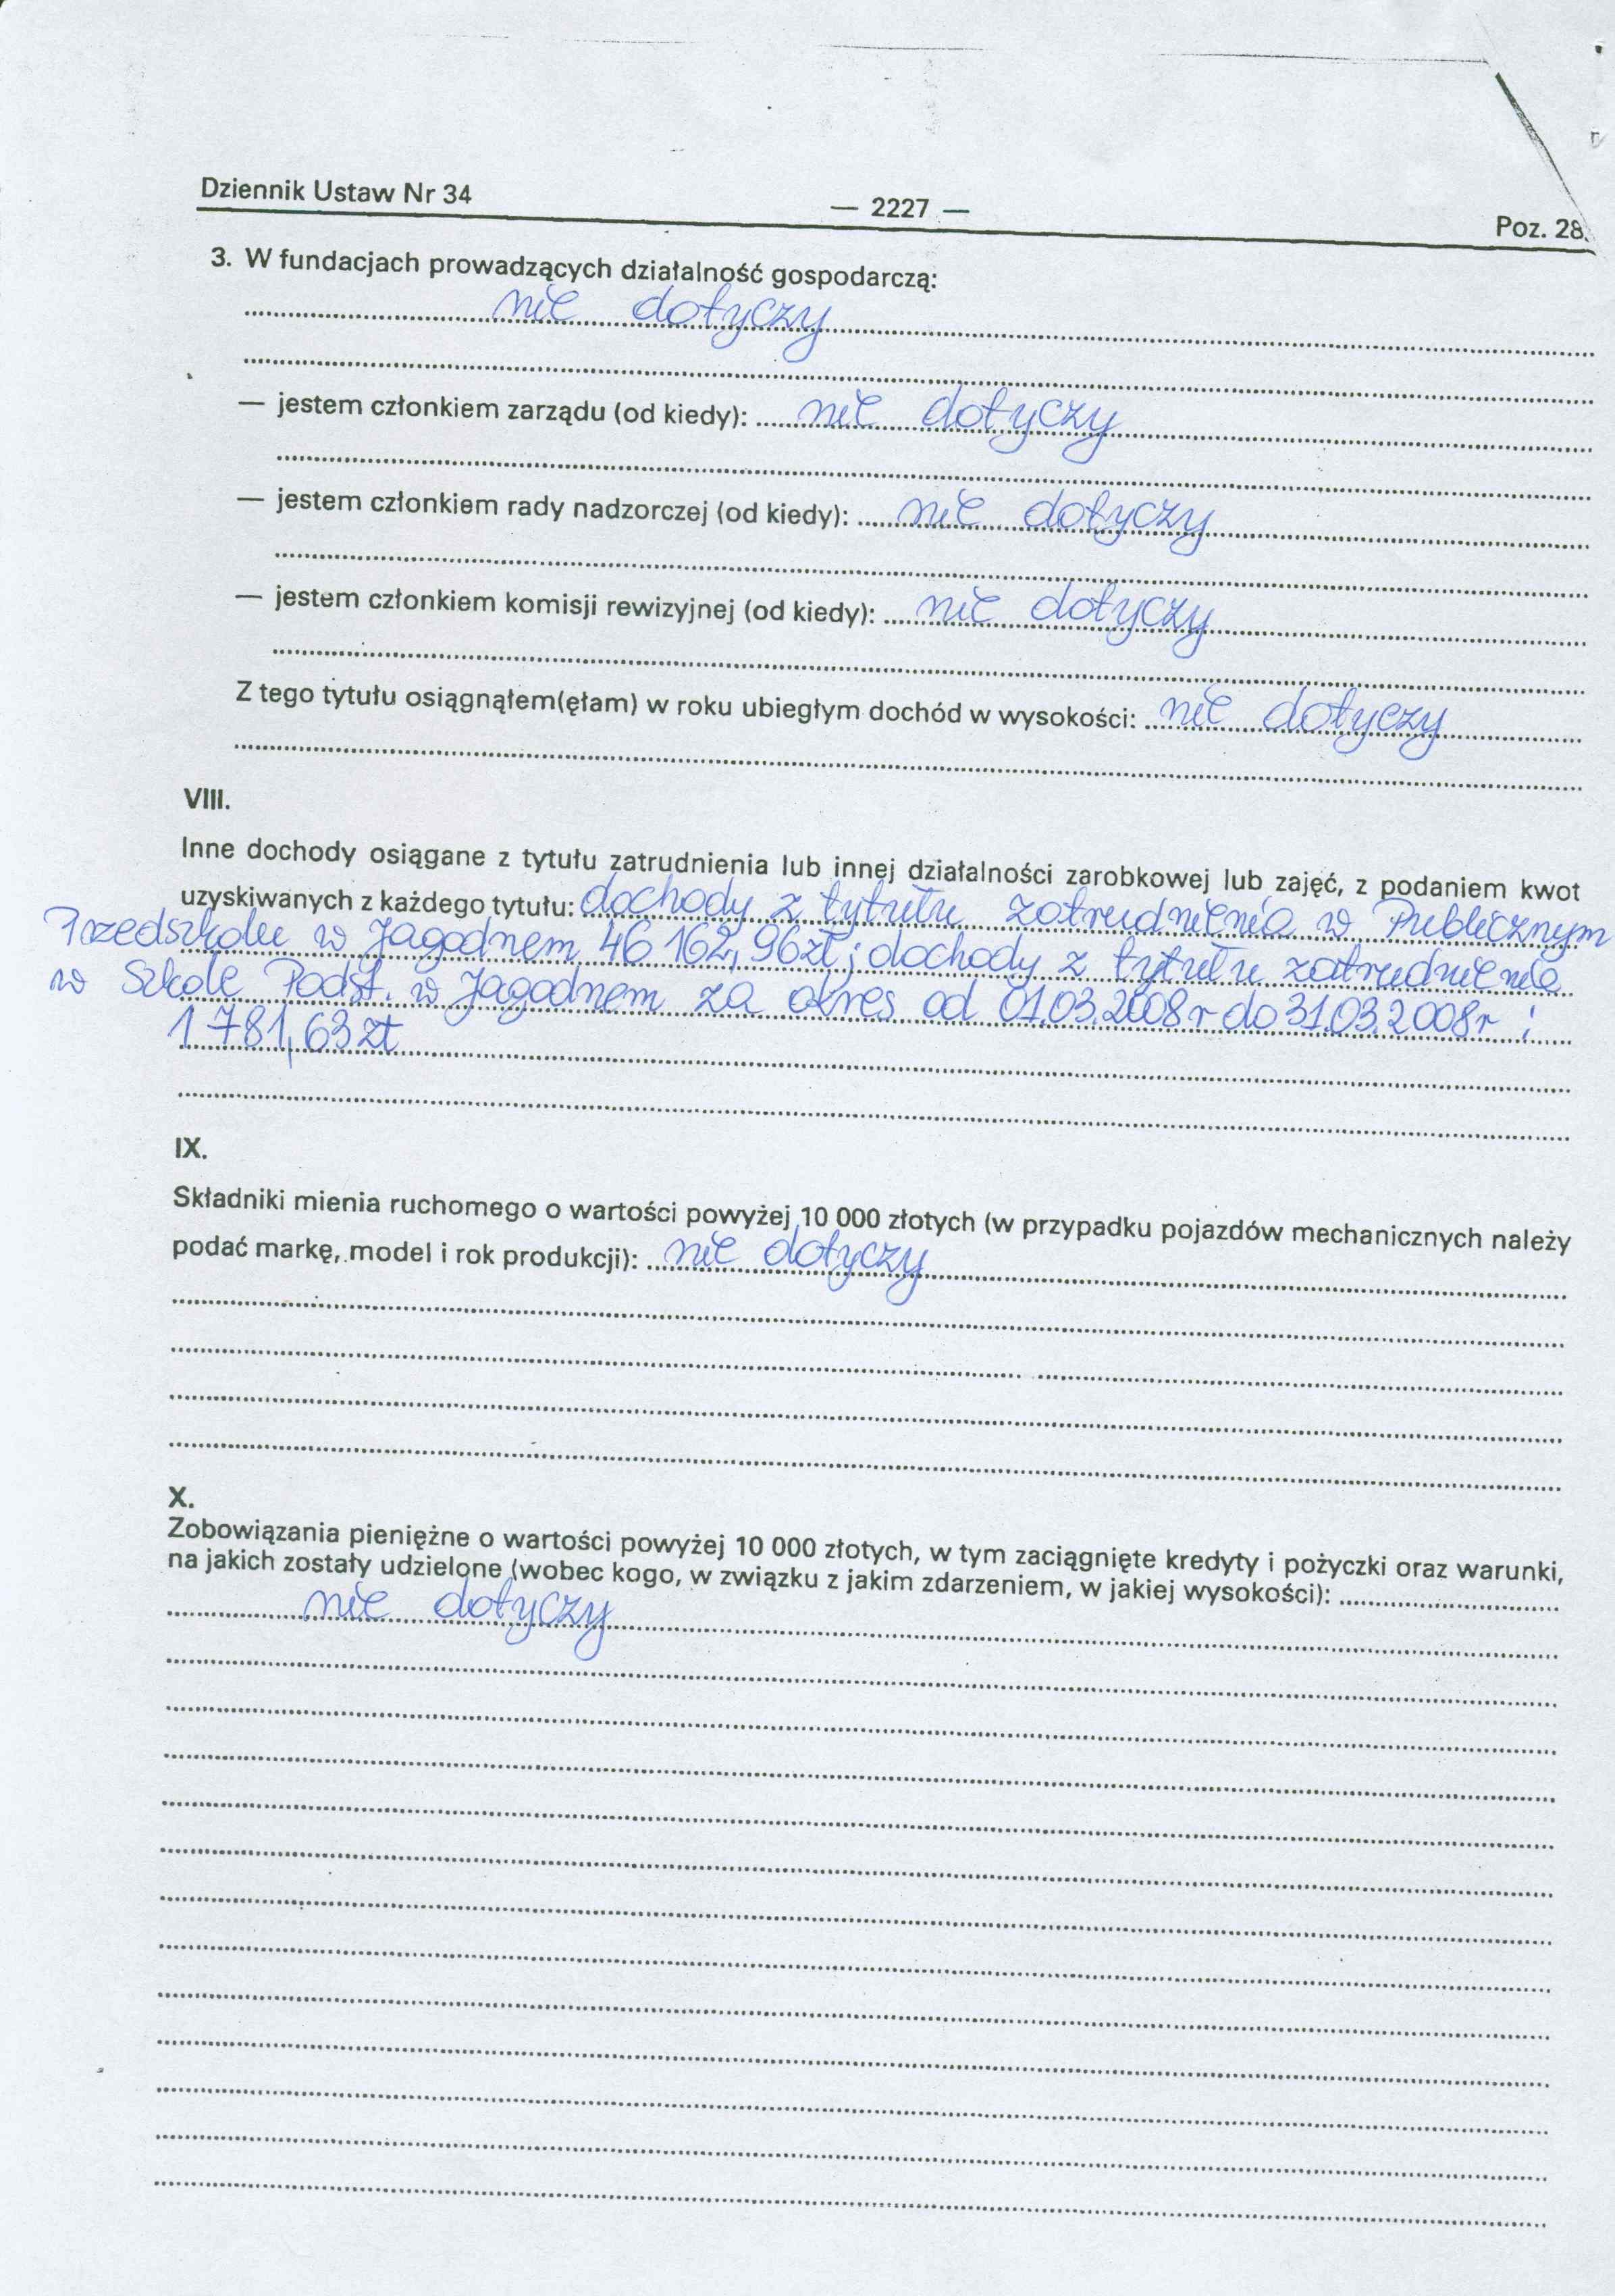 Dziennik Ustaw Nr 34
— 2227 —
Poz. 28
3. W fundacjach prowadzących działalność gospodarczą:
nie dotyczy
— jestem członkiem zarządu (od kiedy): nie dotyczy
— jestem członkiem rady nadzorczej (od kiedy): nie dotyczy
— jestem członkiem komisji rewizyjnej (od kiedy): nie dotyczy
Z tego tytułu osiągnąłem(ęłam) w roku ubiegłym dochód w wysokości: nie dotyczy
VIII.
Inne dochody osiągane z tytułu zatrudnienia lub innej działalności zarobkowej lub zajęć, z podaniem kwot
uzyskiwanych z każdego tytułu: dochody z tytułu zatrudnienia w Publicznym
Przedszkolu w Jagodnem 46 162,96zł; dochody z tytułu zatrudnienia
w Szkole Podst. w Jagodnem za okres od 01.03.2008r do 31.03.2008r :
1 781,63 zł
IX.
Składniki mienia ruchomego o wartości powyżej 10 000 złotych (w przypadku pojazdów mechanicznych należy
podać markę, model i rok produkcji): nie dotyczy
X.
Zobowiązania pieniężne o wartości powyżej 10 000 złotych, w tym zaciągnięte kredyty i pożyczki oraz warunki,
na jakich zostały udzielone (wobec kogo, w związku z jakim zdarzeniem, w jakiej wysokości):
nie dotyczy